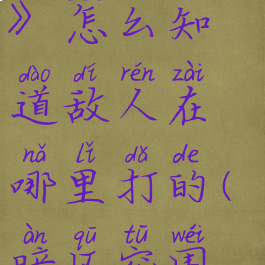 》怎么知
dào dí rén zài
道敌人在
nǎ lǐ dǎ de
哪里打的(
àn qū tū wéi
暗区突围